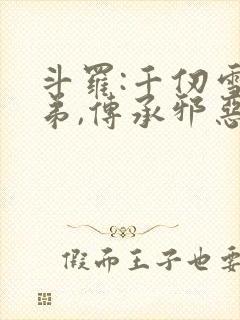 斗羅:千仞雪
弟,傳承邪惡
假而王子也要